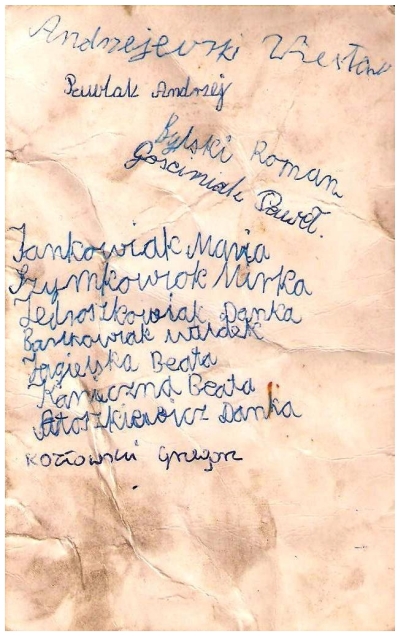 Andrzejewski Wiesław
Pawlak Andrzej
Bylski Roman
Gościniak Paweł.
Jankowiak Maria
Szymkowiak Mirka
Jedroszkowiak Danka
Bartkowiak Waldek
Jagielska Beata
Kanieczna Beata
Danka
Kozłowski Grzegorz